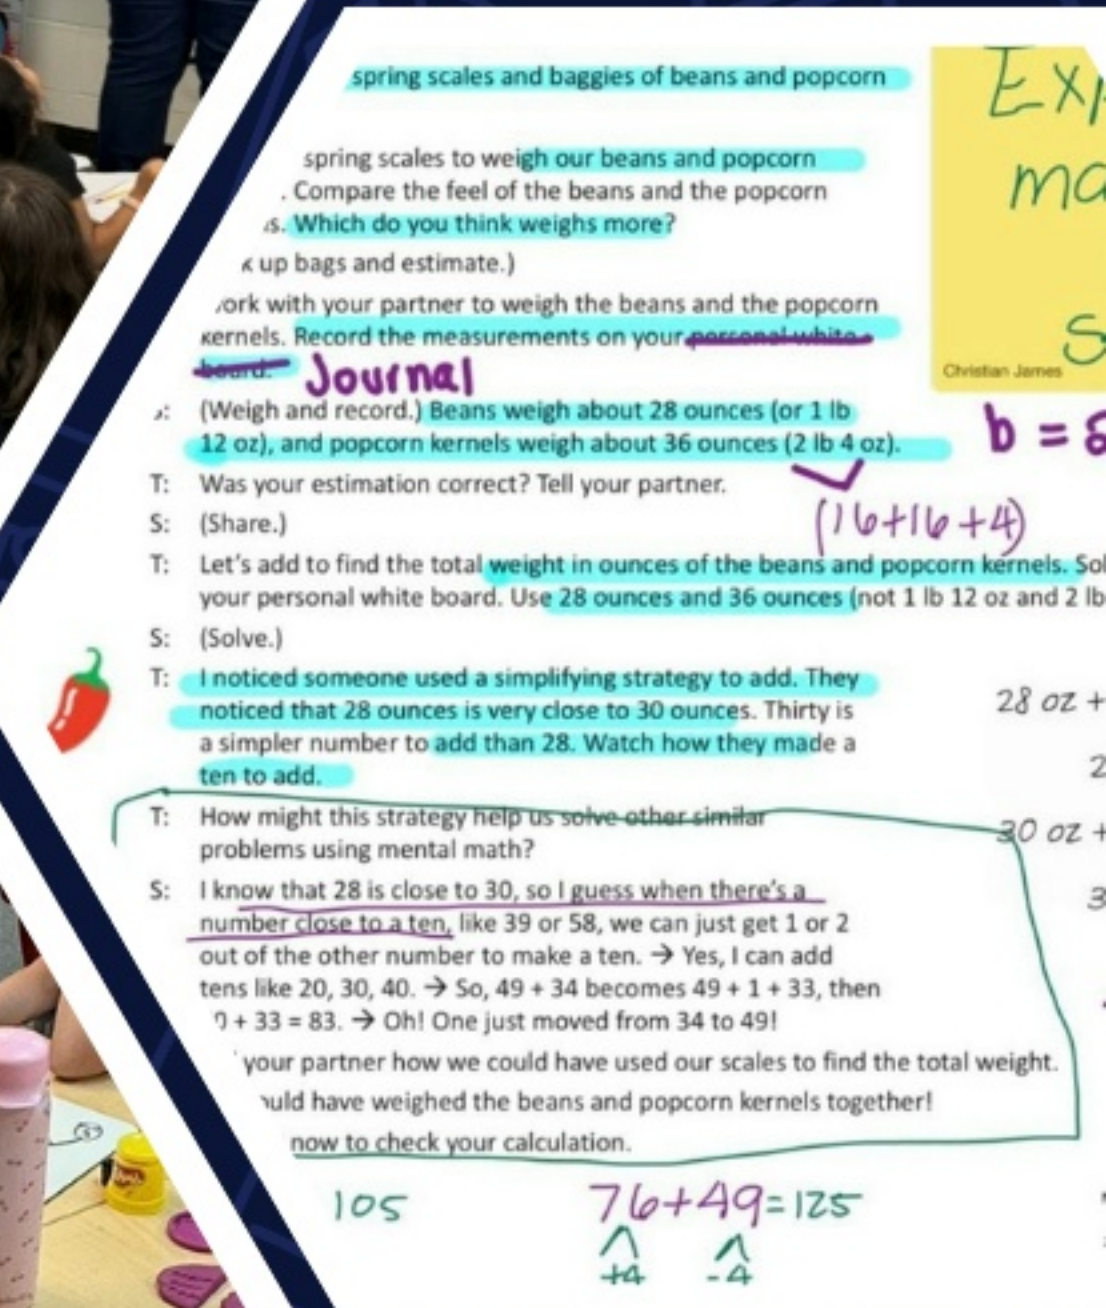 spring scales and baggies of beans and popcorn
spring scales to weigh our beans and popcorn
. Compare the feel of the beans and the popcorn
s. Which do you think weighs more?
up bags and estimate.)
ork with your partner to weigh the beans and the popcorn
kernels. Record the measurements on your personal white
board. Journal
(Weigh and record.) Beans weigh about 28 ounces (or 1 lb
12 oz), and popcorn kernels weigh about 36 ounces (2 lb 4 oz).
T: Was your estimation correct? Tell your partner.
(16+16+4)
S: (Share.)
T: Let's add to find the total weight in ounces of the beans and popcorn kernels. Sol
your personal white board. Use 28 ounces and 36 ounces (not 1 lb 12 oz and 2 lb
S: (Solve.)
T: I noticed someone used a simplifying strategy to add. They
noticed that 28 ounces is very close to 30 ounces. Thirty is
a simpler number to add than 28. Watch how they made a
ten to add.
T: How might this strategy help us solve other similar
problems using mental math?
S: I know that 28 is close to 30, so I guess when there's a
number close to a ten, like 39 or 58, we can just get 1 or 2
out of the other number to make a ten. → Yes, I can add
tens like 20, 30, 40. → So, 49 + 34 becomes 49 + 1 + 33, then
0 + 33 = 83. → Oh! One just moved from 34 to 49!
your partner how we could have used our scales to find the total weight.
uld have weighed the beans and popcorn kernels together!
now to check your calculation.
105
76+49=125
+4 -4
Exp
ma
S
Christian James
b =
28 oz +
2
30 oz +
3